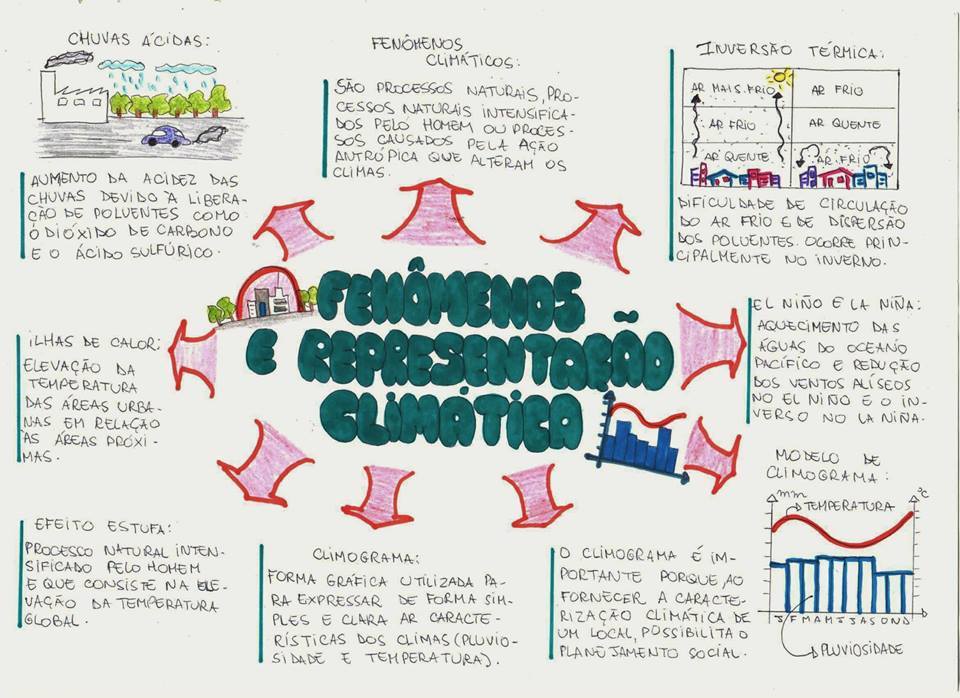 CHUVAS ÁCIDAS:
AUMENTO DA ACIDEZ DAS
CHUVAS DEVIDO À LIBERA-
ÇÃO DE POLUENTES COMO
O DIÓXIDO DE CARBONO
E O ÁCIDO SULFÚRICO.
FENÔMENOS
CLIMÁTICOS:
SÃO PROCESSOS NATURAIS, PRO-
CESSOS NATURAIS INTENSIFICA-
DOS PELO HOMEM OU PROCES-
SOS CAUSADOS PELA AÇÃO
ANTRÓPICA QUE ALTERAM OS
CLIMAS.
INVERSÃO TÉRMICA:
AR MAIS FRIO
AR FRIO
AR FRIO
AR QUENTE
AR QUENTE
AR FRIO
DIFICULDADE DE CIRCULAÇÃO
DO AR FRIO E DE DISPERSÃO
DOS POLUENTES. OCORRE PRIN-
CIPALMENTE NO INVERNO.
FENÔMENOS
E REPRESENTAÇÃO
CLIMÁTICA
ILHAS DE CALOR:
ELEVAÇÃO DA
TEMPERATURA
DAS ÁREAS URBA-
NAS EM RELAÇÃO
ÀS ÁREAS PRÓXI-
MAS.
EL NIÑO E LA NIÑA:
AQUECIMENTO DAS
ÁGUAS DO OCEANO
PACÍFICO E REDUÇÃO
DOS VENTOS ALÍSEOS
NO EL NIÑO E O IN-
VERSO NO LA NIÑA.
EFEITO ESTUFA:
PROCESSO NATURAL INTEN-
SIFICADO PELO HOMEM
E QUE CONSISTE NA ELE-
VAÇÃO DA TEMPERATURA
GLOBAL.
CLIMOGRAMA:
FORMA GRÁFICA UTILIZADA PA-
RA EXPRESSAR DE FORMA SIM-
PLES E CLARA AR CARACTE-
RÍSTICAS DOS CLIMAS (PLUVIO-
SIDADE E TEMPERATURA).
O CLIMOGRAMA É IM-
PORTANTE PORQUE, AO
FORNECER A CARACTE-
RIZAÇÃO CLIMÁTICA DE
UM LOCAL, POSSIBILITA O
PLANEJAMENTO SOCIAL.
MODELO DE
CLIMOGRAMA:
mm
°C
TEMPERATURA
J F M A M J J A S O N D
PLUVIOSIDADE